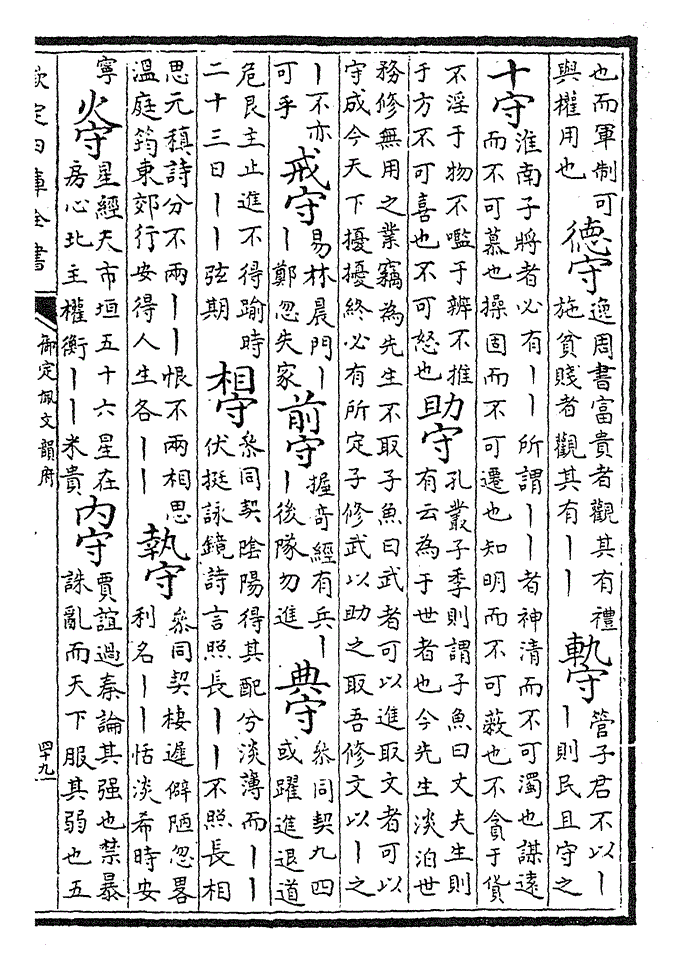 也而軍制可
與權用也
德守
逸周書富貴者觀其有禮
施貧賤者觀其有丨丨
軌守
管子君不以丨
丨則民且守之
十守
淮南子將者必有丨丨所謂丨丨者神清而不可濁也謀遠
而不可慕也操固而不可遷也知明而不可蔽也不貪于貨
不淫于物不嚂于辨不推
于方不可喜也不可怒也
助守
孔叢子季則謂子魚曰丈夫生則
有云為于世者也今先生淡泊世
務修無用之業竊為先生不取子魚曰武者可以進取文者可以
守成今天下擾擾終必有所定子修武以助之取吾修文以丨之
丨不亦
可乎
戒守
易林晨門丨
丨鄭忽失家
前守
握奇經有兵丨
丨後隊勿進
典守
叅同契九四
或躍進退道
危艮主止進不得踰時
二十三日丨丨弦期
相守
叅同契陰陽得其配兮淡薄而丨丨
伏挺詠鏡詩言照長丨丨不照長相
思元稹詩分不兩丨丨恨不兩相思
温庭筠東郊行安得人生各丨丨
執守
叅同契棲遲僻陋忽畧
利名丨丨恬淡希時安
寧
火守
星經天市垣五十六星在
房心北主權衡丨丨米貴
内守
賈誼過秦論其强也禁暴
誅亂而天下服其弱也五
欽定四庫全書
御定佩文韻府
四十九